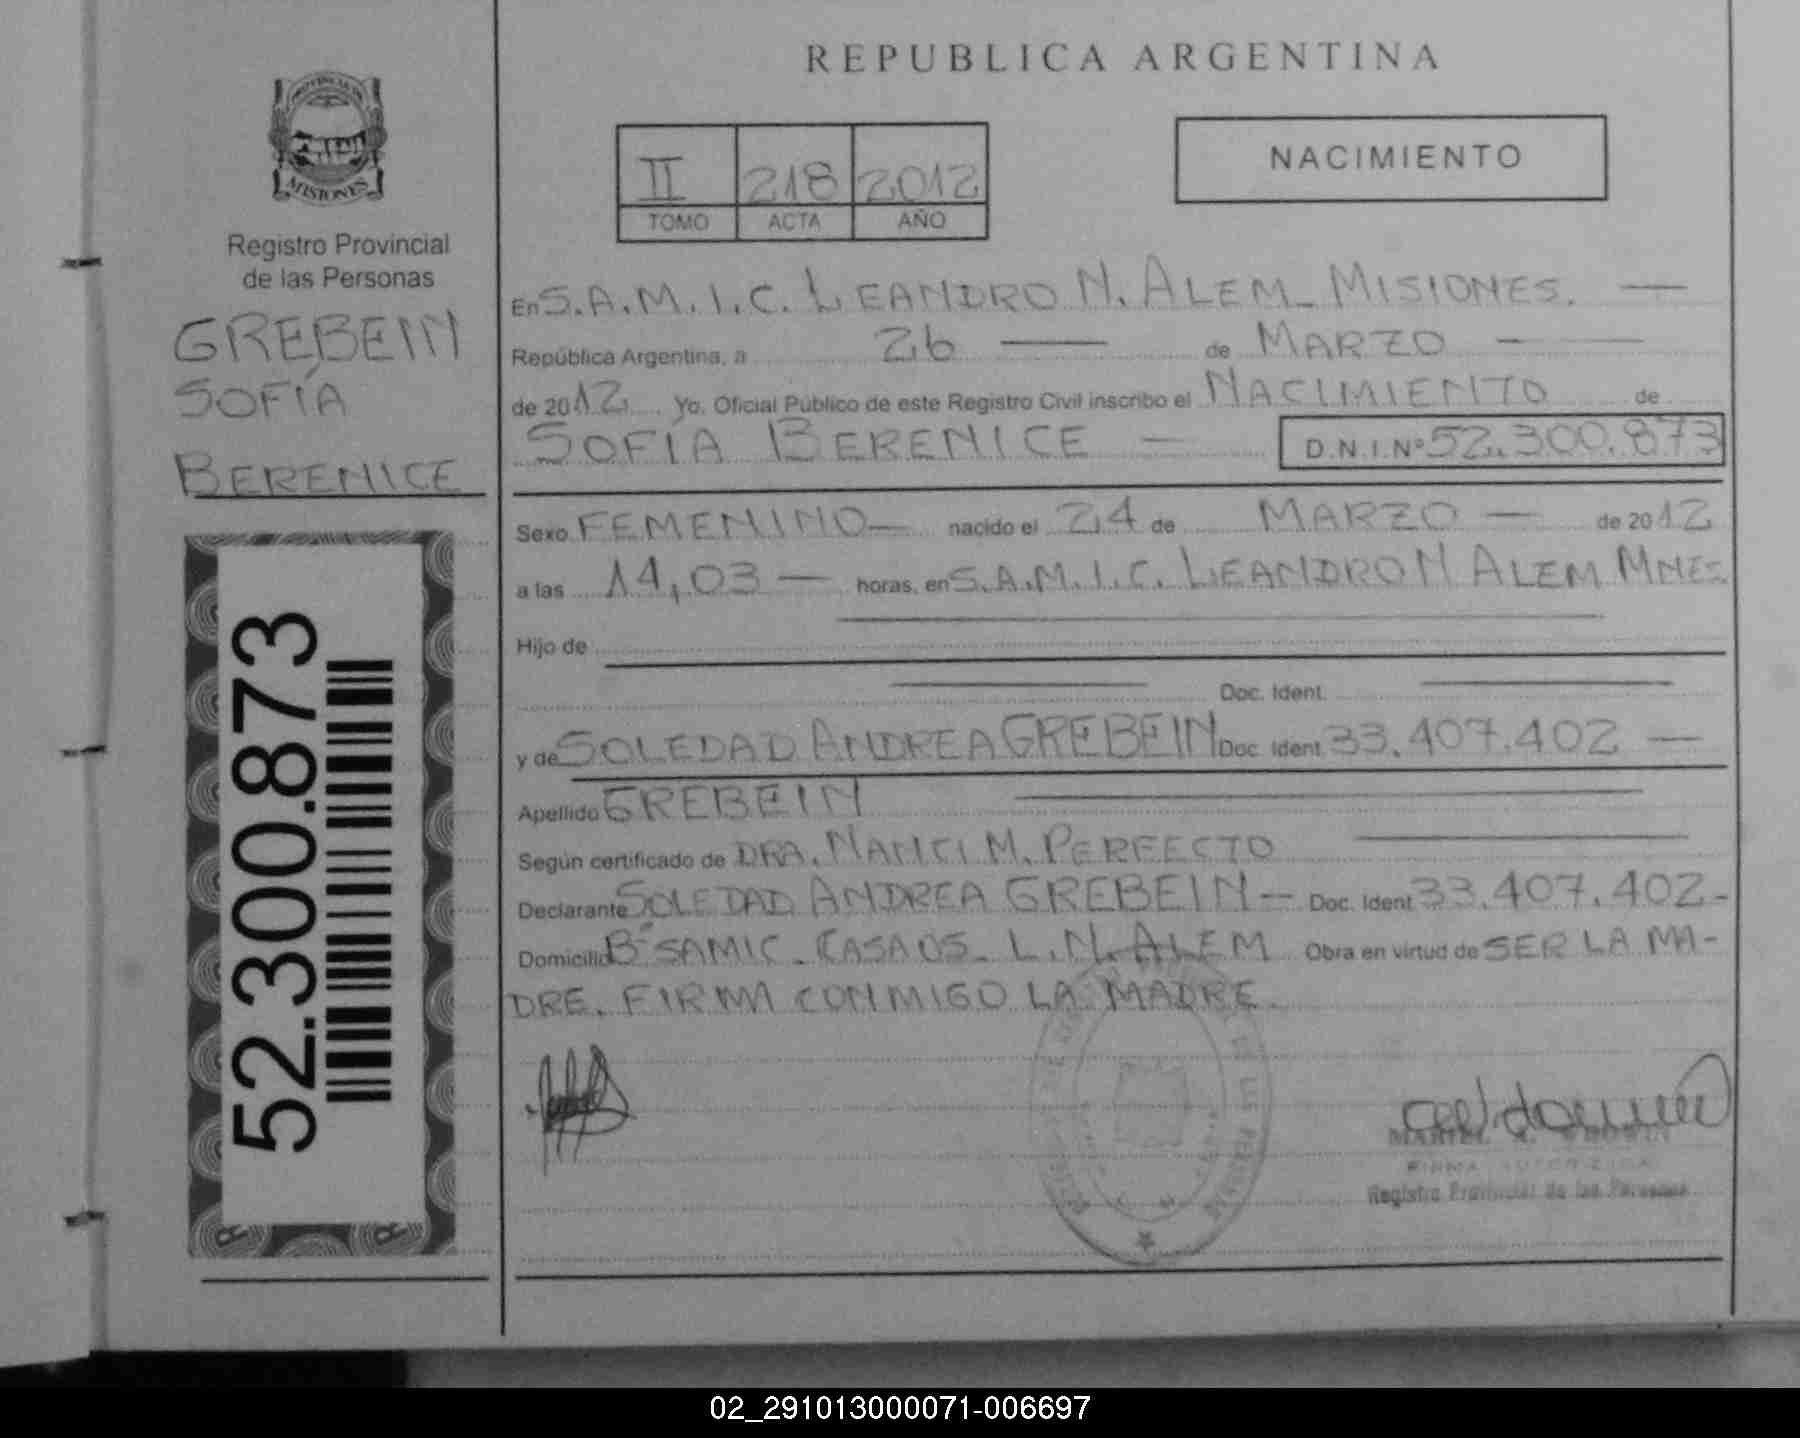 PROVINCIA DE
MISIONES
Registro Provincial
de las Personas
GREBEIN
SOFÍA
BERENICE
52.300.873
REPUBLICA ARGENTINA
II 218 2012
TOMO ACTA AÑO
NACIMIENTO
En S.A.M.I.C. LEANDRO N. ALEM - MISIONES. —
República Argentina, a 26 — de MARZO —
de 2012 Yo, Oficial Público de este Registro Civil inscribo el NACIMIENTO de
SOFÍA BERENICE — D.N.I.Nº 52.300.873
Sexo FEMENINO — nacido el 24 de MARZO — de 2012
a las 14,03 — horas, en S.A.M.I.C. LEANDRO N ALEM MNES.
Hijo de
Doc. Ident.
y de SOLEDAD ANDREA GREBEIN Doc. Ident. 33.407.402 —
Apellido GREBEIN
Según certificado de DRA. NANCI M. PERFECTO
Declarante SOLEDAD ANDREA GREBEIN — Doc. Ident. 33.407.402 -
Domicilio Bº SAMIC - CASA 05 - L.N. ALEM Obra en virtud de SER LA MA-
DRE. FIRMA CONMIGO LA MADRE.
Registro Provincial de las Personas
02_291013000071-006697